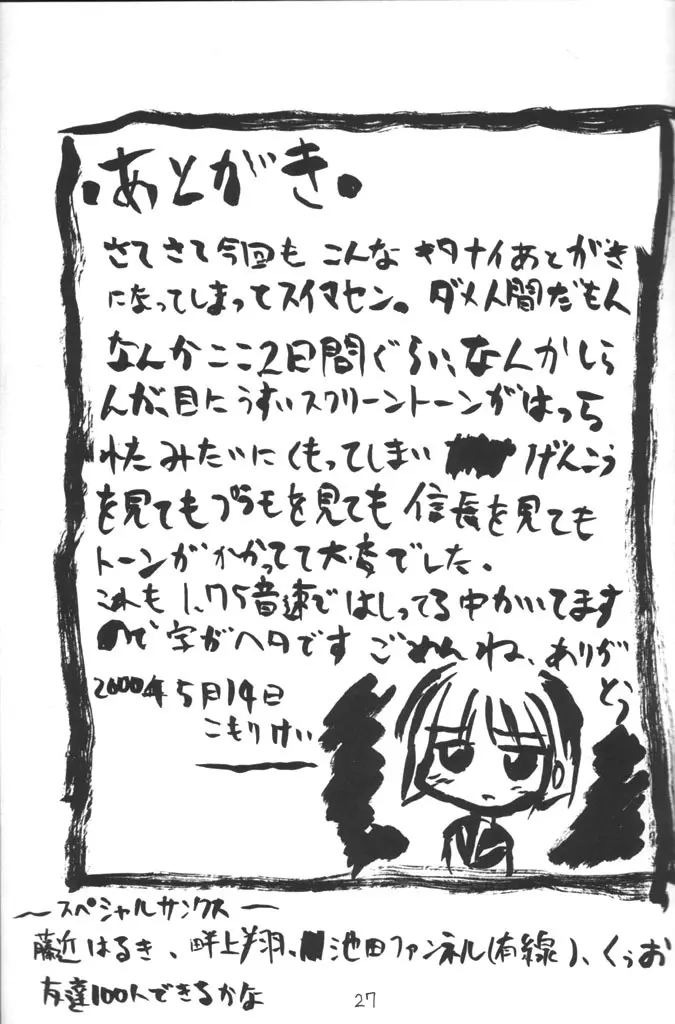 ・あとがき。
さてさて今回も こんな キタナイあとがき
になってしまってスイマセン。 ダメ人間だもん
なんかここ2日間ぐらい、なんかしら
んが、目にうすいスクリーントーンがはっち
れたみたいにくもってしまい げんこう
を見てもプラモを見ても 信長を見ても
トーンがかかってて大変でした。
これも 1.75音速ではしってる中かいてます
ので字がヘタです ごめんね、ありが
とう
2000年5月14日
こもりけい
～スペシャルサンクス～
藤近はるき、畔上翔、池田ファンネル(有線)、くぅお
友達100人できるかな
27